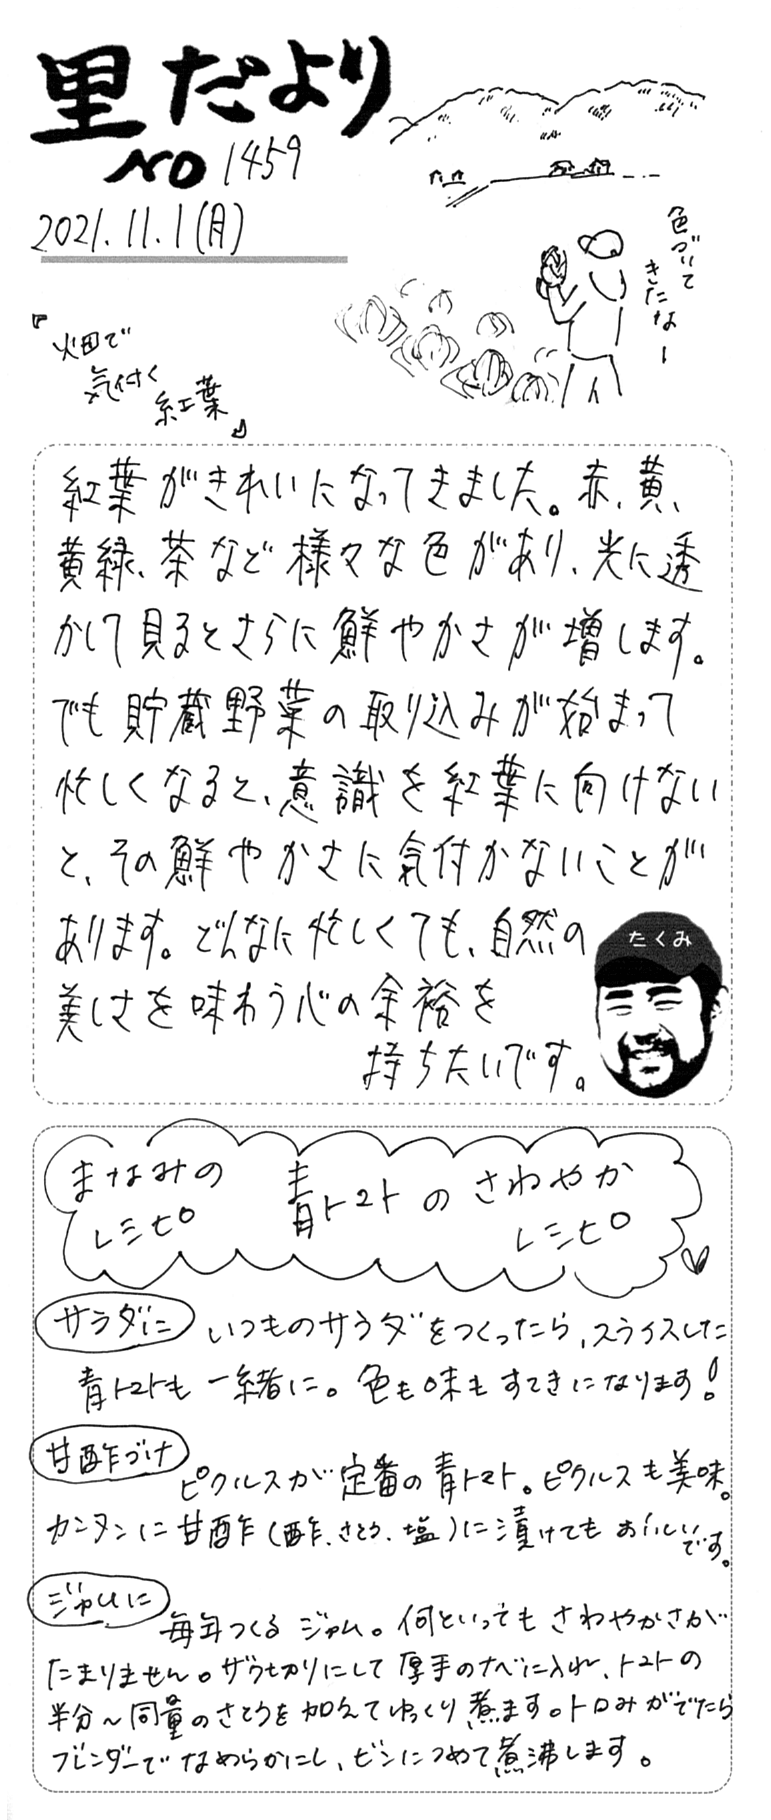 里だより
NO 1459
2021.11.1(月)
色づいて
きたなー
『畑で
気付く
紅葉』
紅葉がきれいになってきました。赤、黄、
黄緑、茶など様々な色があり、光に透
かして見るとさらに鮮やかさが増します。
でも貯蔵野菜の取り込みが始まって
忙しくなると、意識を紅葉に向けない
と、その鮮やかさに気付かないことが
あります。どんなに忙しくても、自然の
美しさを味わう心の余裕を
持ちたいです。
たくみ
まなみの
レシピ
青トマトのさわやか
レシピ
サラダに
いつものサラダをつくったら、スライスした
青トマトも一緒に。色も味もすてきになります!
甘酢づけ
ピクルスが定番の青トマト。ピクルスも美味。
カンタンに甘酢(酢、さとう、塩)に漬けてもおいしい
です。
ジャムに
毎年つくるジャム。何といってもさわやかさが
たまりません。ザク切りにして厚手のナベに入れ、トマトの
半分~同量のさとうを加えてゆっくり煮ます。トロみがでたら
ブレンダーでなめらかにし、ビンにつめて煮沸します。